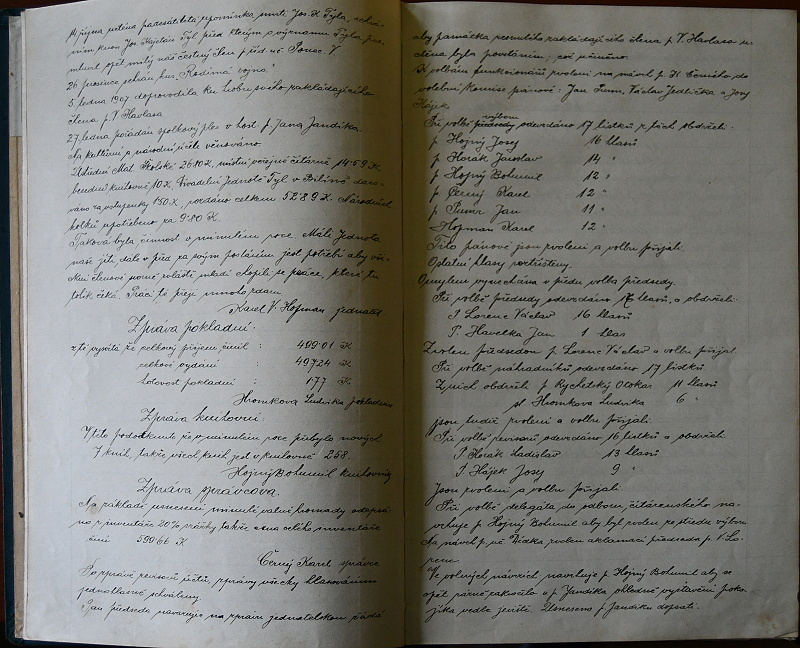 14 října vzpomínka úmrtí Jos. K. Tyla, sehrá-
ním kusu Jos. Kajetán Tyl před kterým o významu Tyla
opět milý náš čestný člen p. řed. uč. V
26 prosince sehrán kus "Rodinná vojna"
5 ledna 1907 doprovodila ku hrobu svého zakládajícího
člena p. V. Havlasa
27 ledna pořádán spolkový ples v host. p. Jana Jandíka.
Na kulturní a národní účele věnováno
Ústřední Mat. Školské 26·80 K, místní veřejné čítárně 14·59 K
knihovně 10 K. Divadelní Jednotě Tyl v Bílině daro-
váno za vstupenky 1·50 K, vydáno celkem 52·89 K. Národních
kolků upotřebeno za 9·80 K.
Taková byla činnost v minulém roce. Má-li Jednota
naše jíti dále v před za svým posláním, jest potřebí aby vši-
chni členové zvláště mladí chopili se práce, která tu
tolik čeká. Práci té přeji mnoho zdaru
Karel V. Hofman jednatel
Zpráva pokladní:
z té vysvítá že celkový příjem činil : 499·01 K
celkové vydání : 497·24 K
hotovost pokladní : 1·77 K
Hromková Ludvika pokladní
Zpráva knihovní:
V této podotknuto že v minulém roce přibylo nových
7 knih, takže všech knih jest v knihovně 258.
Hojný Bohumil knihovník
Zpráva správcova.
Na základě usnesení minulé valné hromady odepsá-
no z inventáře 20% srážky takže cena celého inventáře
činí 590·66 K
Černý Karel správce
Po zprávě revisorů účtů, zprávy všecky hlasováním
jednohlasně schváleny.
Pan předseda navazuje na zprávu jednatelskou žádá
aby památka zesnulého zakládajícího člena p. V. Havlasa u-
ctěna byla povstáním, což učiněno.
K volbám funkcionářů zvoleni na návrh p. K. Černého do
volební komise pánové: Jan Šumr, Václav Jedlička a Josef
Hájek
Při volbě předsedy výboru odevzdáno 17 lístků z těch obdrželi:
p Hojný Josef 16 hlasů
p Horák Jaroslav 14 "
p Hojný Bohumil 12 "
p Černý Karel 12 "
p Šumr Jan 11 "
Hofman Karel 12 "
Tito pánové jsou zvoleni a volbu přijali.
Ostatní hlasy roztříštěny.
Omylem vynechána v předu volba předsedy.
Při volbě předsedy odevzdáno 17 hlasů, a obdrželi:
P. Lorenc Václav 16 hlasů
P. Havelka Jan 1 hlas
Zvolen předsedou p Lorenc Václav a volbu přijal.
Při volbě náhradníků odevzdáno 17 lístků
Z nich obdrželi p Rychetský Otokar 11 hlasů
sl. Hromkova Ludvika 6 "
jsou tudíž zvoleni a volbu přijali.
Při volbě revisorů odevzdáno 16 lístků a obdrželi:
P. Horák Ladislav 13 hlasů
P. Hájek Josef 9 "
Jsou zvoleni a volbu přijali.
Při volbě delegáta do odboru čítárenského na-
vrhuje p. Hojný Bohumil aby byl zvolen ze středu výboru
Na návrh p. uč. Dědka zvolen aklamací předseda p. V. Lo-
renc.
Ve volných návrzích navrhuje p. Hojný Bohumil aby se
opět zakročilo u p. Jandíka ohledně vystavění poko-
jíka vedle jeviště. Usneseno p. Jandíku dopsati.